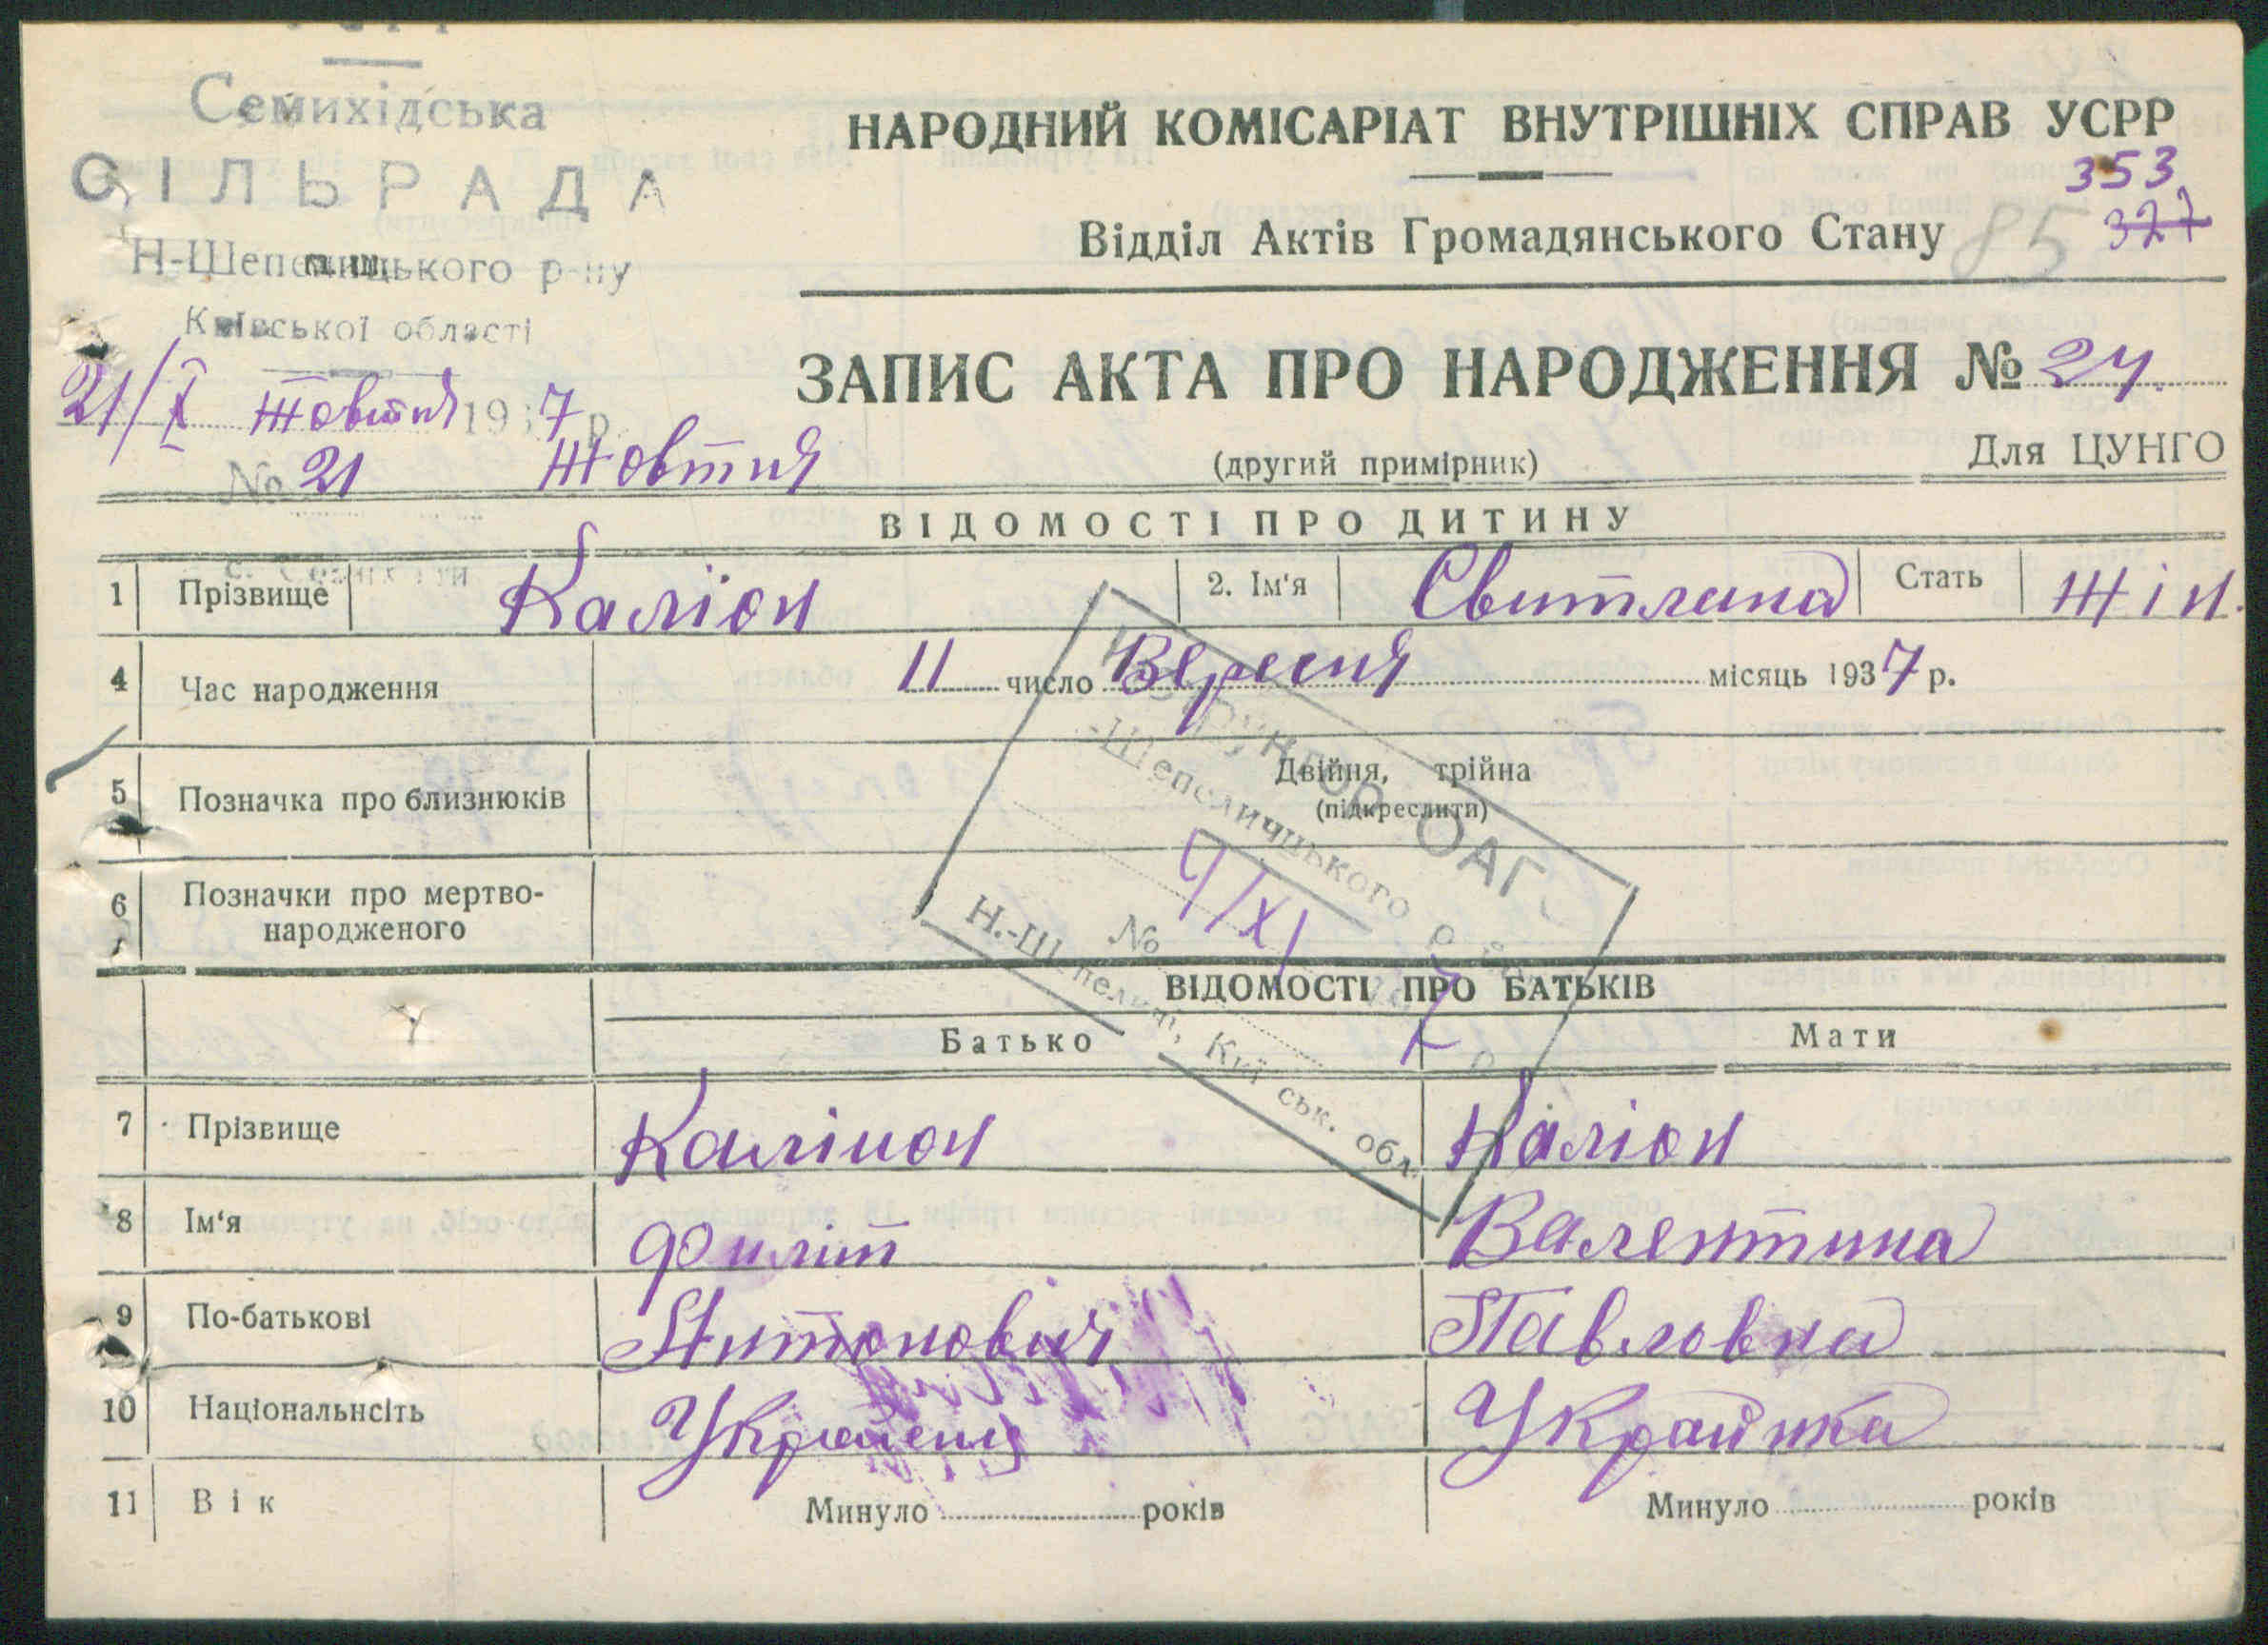 Семихідська
СІЛЬРАДА
Н-Шепелицького р-ну
Київської області
21/X Жовтня 1937 р.
№ 21 Жовтня
НАРОДНИЙ КОМІСАРІАТ ВНУТРІШНІХ СПРАВ УСРР
353
327
Відділ Актів Громадянського Стану 85
ЗАПИС АКТА ПРО НАРОДЖЕННЯ № 24.
(другий примірник)
Для ЦУНГО
ВІДОМОСТІ ПРО ДИТИНУ
1 Прізвище Каліон 2. Ім'я Свитлана Стать Жін.
4 Час народження 11 число Вересня місяць 1937 р.
5 Позначка про близнюків Двійня, трійна
(підкреслити)
6 Позначки про мертво-
народженого
ОАГ
-Шепеличцького
№ 4/XI
Н.-Шепеличі, Київськ. обл.
ВІДОМОСТІ ПРО БАТЬКІВ
Батько Мати
7 Прізвище Каліион Каліон
8 Ім'я Филіп Валентина
9 По-батькові Антонович Павловна
10 Національнсіть Украйенец Украйнка
11 Вік Минуло років Минуло років